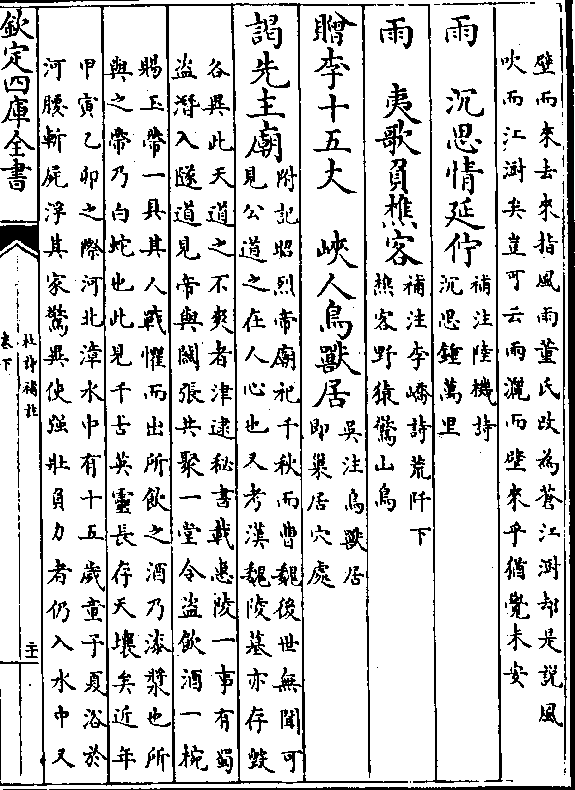 壁而來去來指風雨董氏改為蒼江澍却是說風
吹而江澍矣豈可云雨灑而壁來乎猶覺未安
雨　沉思情延佇
補注陸機詩
沉思鍾萬里
雨　夷歌負樵客
補注李嶠詩荒阡下
樵客野猿驚山鳥
贈李十五丈　峽人鳥獸居
吳注鳥獸居
即巢居穴處
謁先主廟
附記昭烈帝廟祀千秋而曹魏後世無聞可
見公道之在人心也又考漢魏陵墓亦存毀
各異此天道之不爽者津逮秘書載惠陵一事有蜀
盜潛入隧道見帝與關張共聚一堂令盜飲酒一椀
賜玉帶一具其人戰懼而出所飲之酒乃漆漿也所
與之帶乃白蛇也此見千古英靈長存天壤矣近年
甲寅乙卯之際河北漳水中有十五歲童子夏浴於
河腰斬屍浮其家驚異使強壯負力者仍入水中又
欽定四庫全書
杜詩補註
卷下
二十